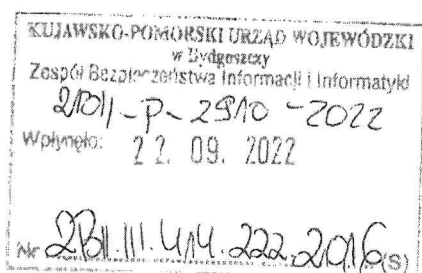 KUJAWSKO-POMORSKI URZĄD WOJEWÓDZKI
w Bydgoszczy
Zespół Bezpieczeństwa Informacji i Informatyki
ZBII-P-2910-2022
Wpłynęło: 22. 09. 2022
Nr ZBII.III.414.222.2016(S)